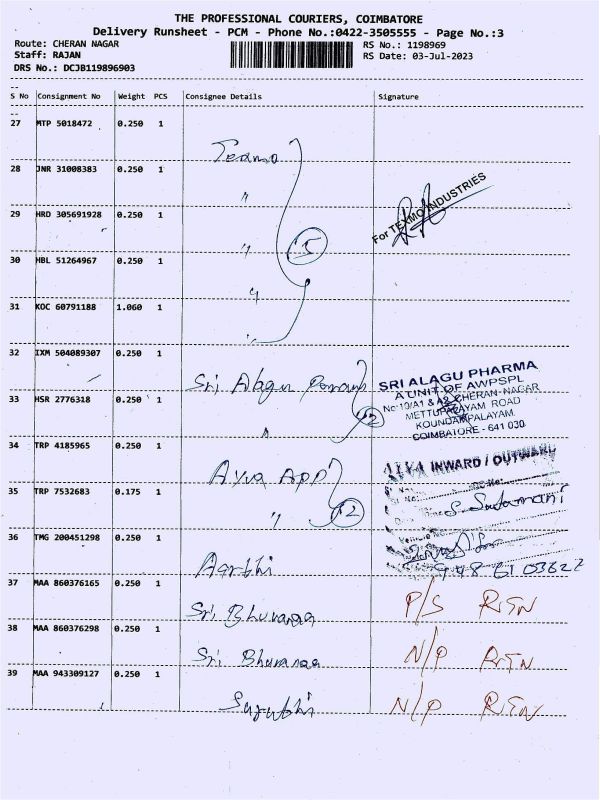 THE PROFESSIONAL COURIERS, COIMBATORE
Delivery Runsheet - PCM - Phone No.:0422-3505555 - Page No.:3
Route: CHERAN NAGAR RS No.: 1198969
Staff: RAJAN RS Date: 03-Jul-2023
DRS No.: DCJB119896903
S No Consignment No Weight PCS Consignee Details Signature
27 MTP 5018472 0.250 1
Texmo
28 JNR 31008383 0.250 1
"
For TEXMO INDUSTRIES
29 HRD 305691928 0.250 1
" 5
30 HBL 51264967 0.250 1
"
31 KOC 60791188 1.060 1
"
32 IXM 504089307 0.250 1
Sri Alagu
SRI ALAGU PHARMA
A UNIT OF AWPSPL
No:10/A1 & A2, CHERAN-NAGAR
METTUPALAYAM ROAD
KOUNDAMPALAYAM.
COIMBATORE - 641 030.
33 HSR 2776318 0.250 1
" 2
34 TRP 4185965 0.250 1
Ayva App
INWARD / OUTWARD
35 TRP 7532683 0.175 1
" 2
36 TMG 200451298 0.250 1
Aarthi
37 MAA 860376165 0.250 1
Sri Bhuvanaa P/S RTN
38 MAA 860376298 0.250 1
Sri Bhuvanaa N/P RTN
39 MAA 943309127 0.250 1
Surabhi N/P RTN